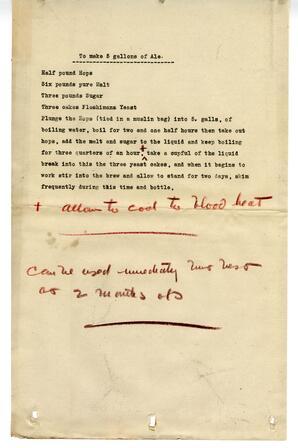 To make 5 gallons of Ale.
Half pound Hops
Six pounds pure Malt
Three pounds Sugar
Three cakes Fleshimans Yeast
Plunge the Hops (tied in a muslin bag) into 5. galls, of
boiling water, boil for two and one half hours then take out
hops, add the malt and sugar to the liquid and keep boiling
+
for three quarters of an hour, take a cupful of the liquid
break into this the three yeast cakes, and when it begins to
work stir into the brew and allow to stand for two days, skim
frequently during this time and bottle.
+ allow to cool to blood heat
can be used immediately but best
as 2 months old